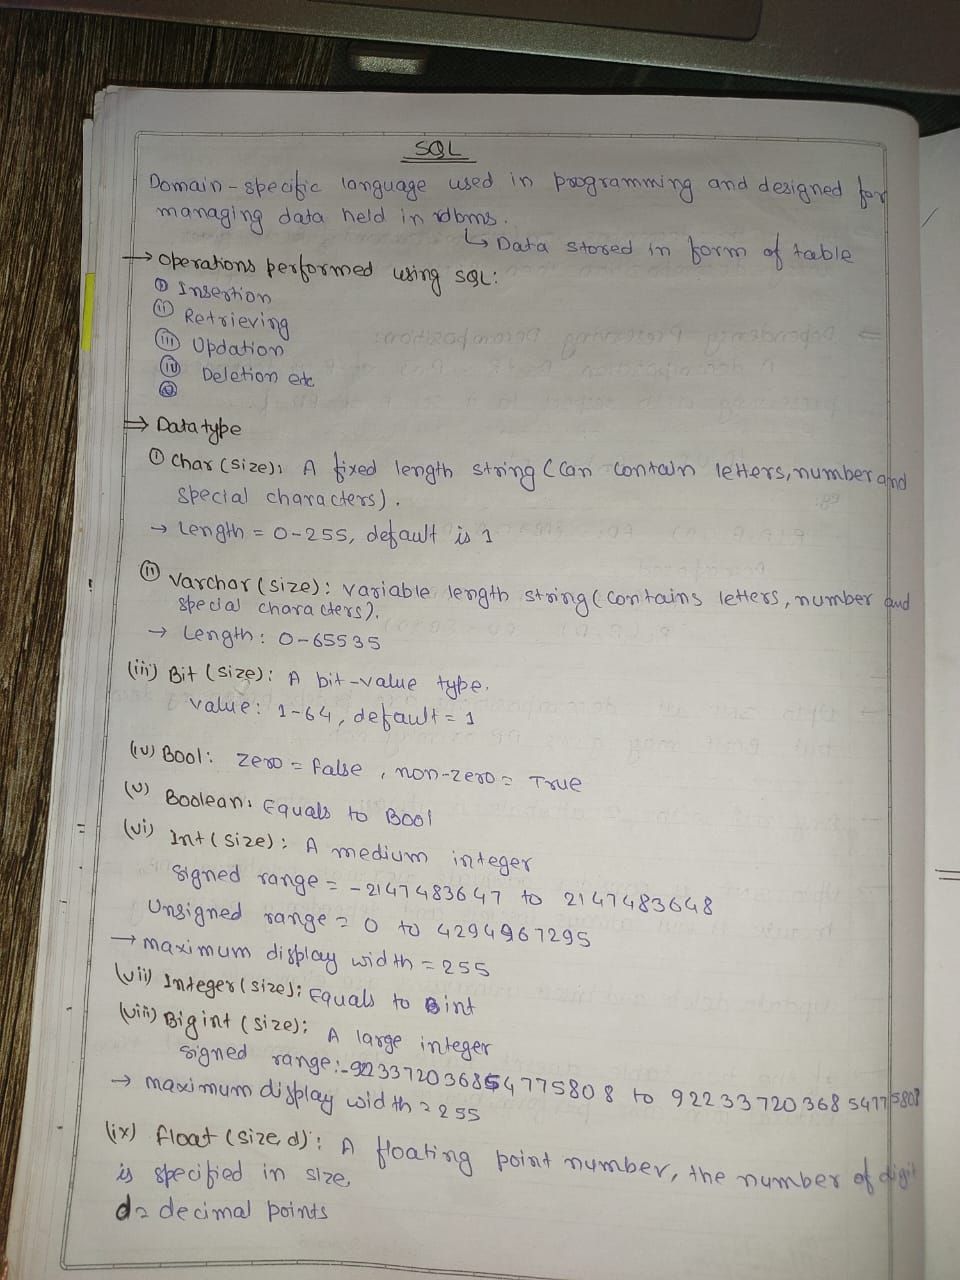 SQL
Domain-specific language used in programming and designed for
managing data held in rdbms.
↳ Data stored in form of table
→ Operations performed using SQL:
(i) Insertion
(ii) Retrieving
(iii) Updation
(iv) Deletion etc
⇒ Datatype
(i) Char (size): A fixed length string (Can contain letters, number and
special characters).
→ Length = 0-255, default is 1
(ii) Varchar (size): Variable length string (contains letters, number and
special characters).
→ Length: 0-65535
(iii) Bit (size): A bit-value type.
Value: 1-64, default = 1
(iv) Bool: Zero = false, non-zero = True
(v) Boolean: Equals to Bool
(vi) Int (size): A medium integer
Signed range = -2147483647 to 2147483648
Unsigned range = 0 to 4294967295
→ maximum display width = 255
(vii) Integer (size): Equals to int
(viii) Bigint (size): A large integer
Signed range: -9223372036854775808 to 9223372036854775808
→ maximum display width = 255
(ix) float (size, d): A floating point number, the number of digit
is specified in size,
d = decimal points